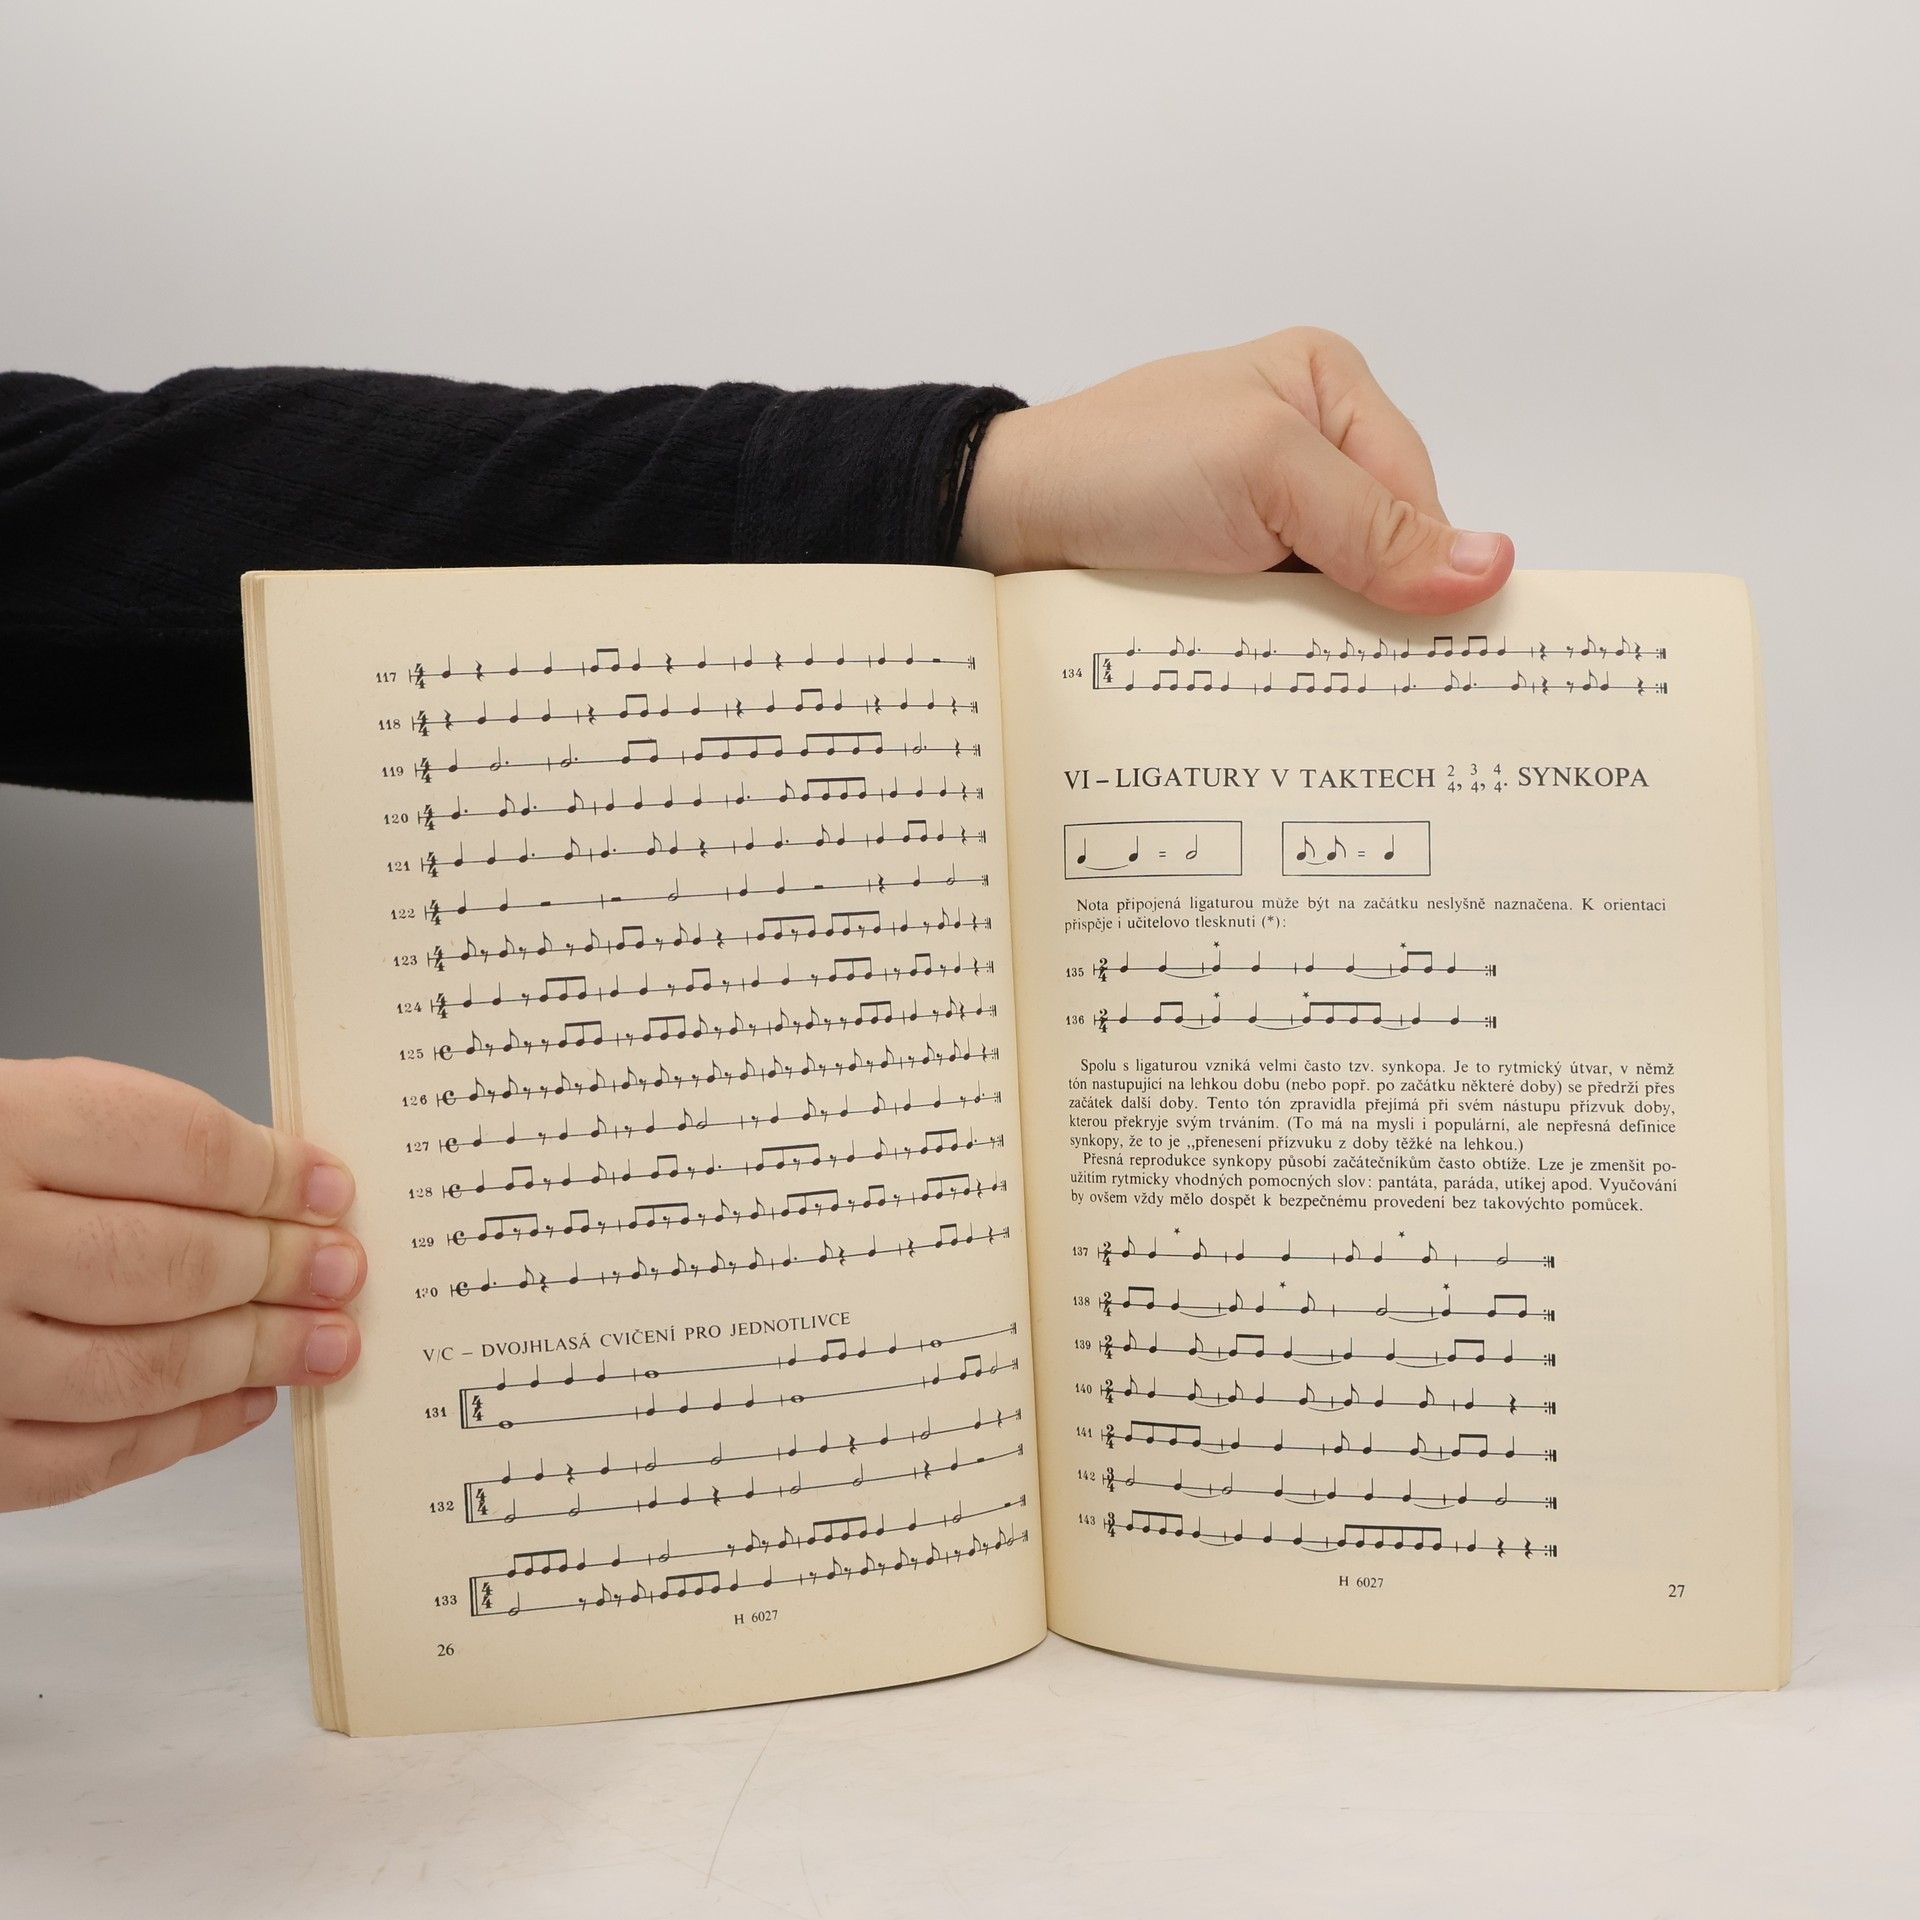 117 4/4
118 4/4
119 4/4
120 4/4
121 4/4
122 4/4
123 4/4
124 4/4
125 C
126 C
127 C
128 C
129 C
130 C
V/C – DVOJHLASÁ CVIČENÍ PRO JEDNOTLIVCE
131 4/4
132 4/4
133 4/4
H 6027
26
134 4/4
VI – LIGATURY V TAKTECH 2/4, 3/4, 4/4. SYNKOPA
= =
Nota připojená ligaturou může být na začátku neslyšně naznačena. K orientaci
přispěje i učitelovo tlesknutí (*):
* *
135 2/4
* *
136 2/4
Spolu s ligaturou vzniká velmi často tzv. synkopa. Je to rytmický útvar, v němž
tón nastupující na lehkou dobu (nebo popř. po začátku některé doby) se předrží přes
začátek další doby. Tento tón zpravidla přejímá při svém nástupu přízvuk doby,
kterou překryje svým trváním. (To má na mysli i populární, ale nepřesná definice
synkopy, že to je ,,přenesení přízvuku z doby těžké na lehkou.)
Přesná reprodukce synkopy působí začátečníkům často obtíže. Lze je zmenšit po-
užitím rytmicky vhodných pomocných slov: pantáta, paráda, utíkej apod. Vyučování
by ovšem vždy mělo dospět k bezpečnému provedení bez takovýchto pomůcek.
* *
137 2/4
* *
138 2/4
139 2/4
140 2/4
141 2/4
142 3/4
143 3/4
H 6027
27